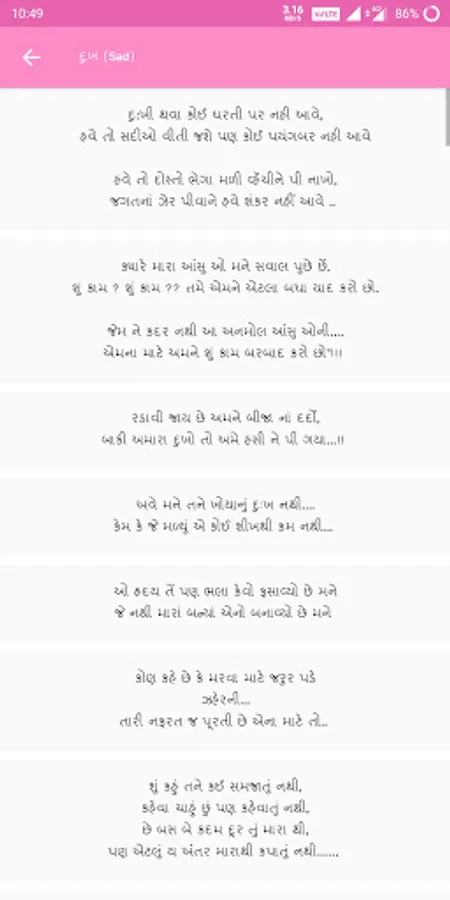 10:49
3.16
KB/S
VoLTE
4G
86%
દુઃખ (Sad)
દુઃખી થવા કોઈ ધરતી પર નહીં આવે,
હવે તો સદીઓ વીતી જશે પણ કોઈ પયંગબર નહી આવે
હવે તો દોસ્તો ભેગા મળી વ્હેંચીને પી નાખો,
જગતનાં ઝેર પીવાને હવે શંકર નહીં આવે ..
ક્યારે મારા આંસુ ઓ મને સવાલ પુછે છે.
શું કામ ? શું કામ ?? તમે એમને એટલા બધા યાદ કરો છો.
જેમ ને કદર નથી આ અનમોલ આંસુ ઓની....
એમના માટે અમને શું કામ બરબાદ કરો છો૧!!
રડાવી જાય છે અમને બીજા નાં દર્દો,
બાકી અમારા દુખો તો અમે હસી ને પી ગયા...!!
અવે મને તને ખોયાનું દુઃખ નથી....
કેમ કે જે મળ્યું એ કોઈ શીખથી કમ નથી....
ઓ હૃદય તેં પણ ભલા કેવો ફસાવ્યો છે મને
જે નથી મારાં બન્યાં એનો બનાવ્યો છે મને
કોણ કહે છે કે મરવા માટે જરુર પડે
ઝહેરની...
તારી નફરત જ પૂરતી છે એના માટે તો...
શું કહું તને કઈ સમજાતું નથી,
કહેવા ચાહું છું પણ કહેવાતું નથી,
છે બસ બે કદમ દૂર તું મારા થી,
પણ એટલું ય અંતર મારાથી કપાતું નથી.......